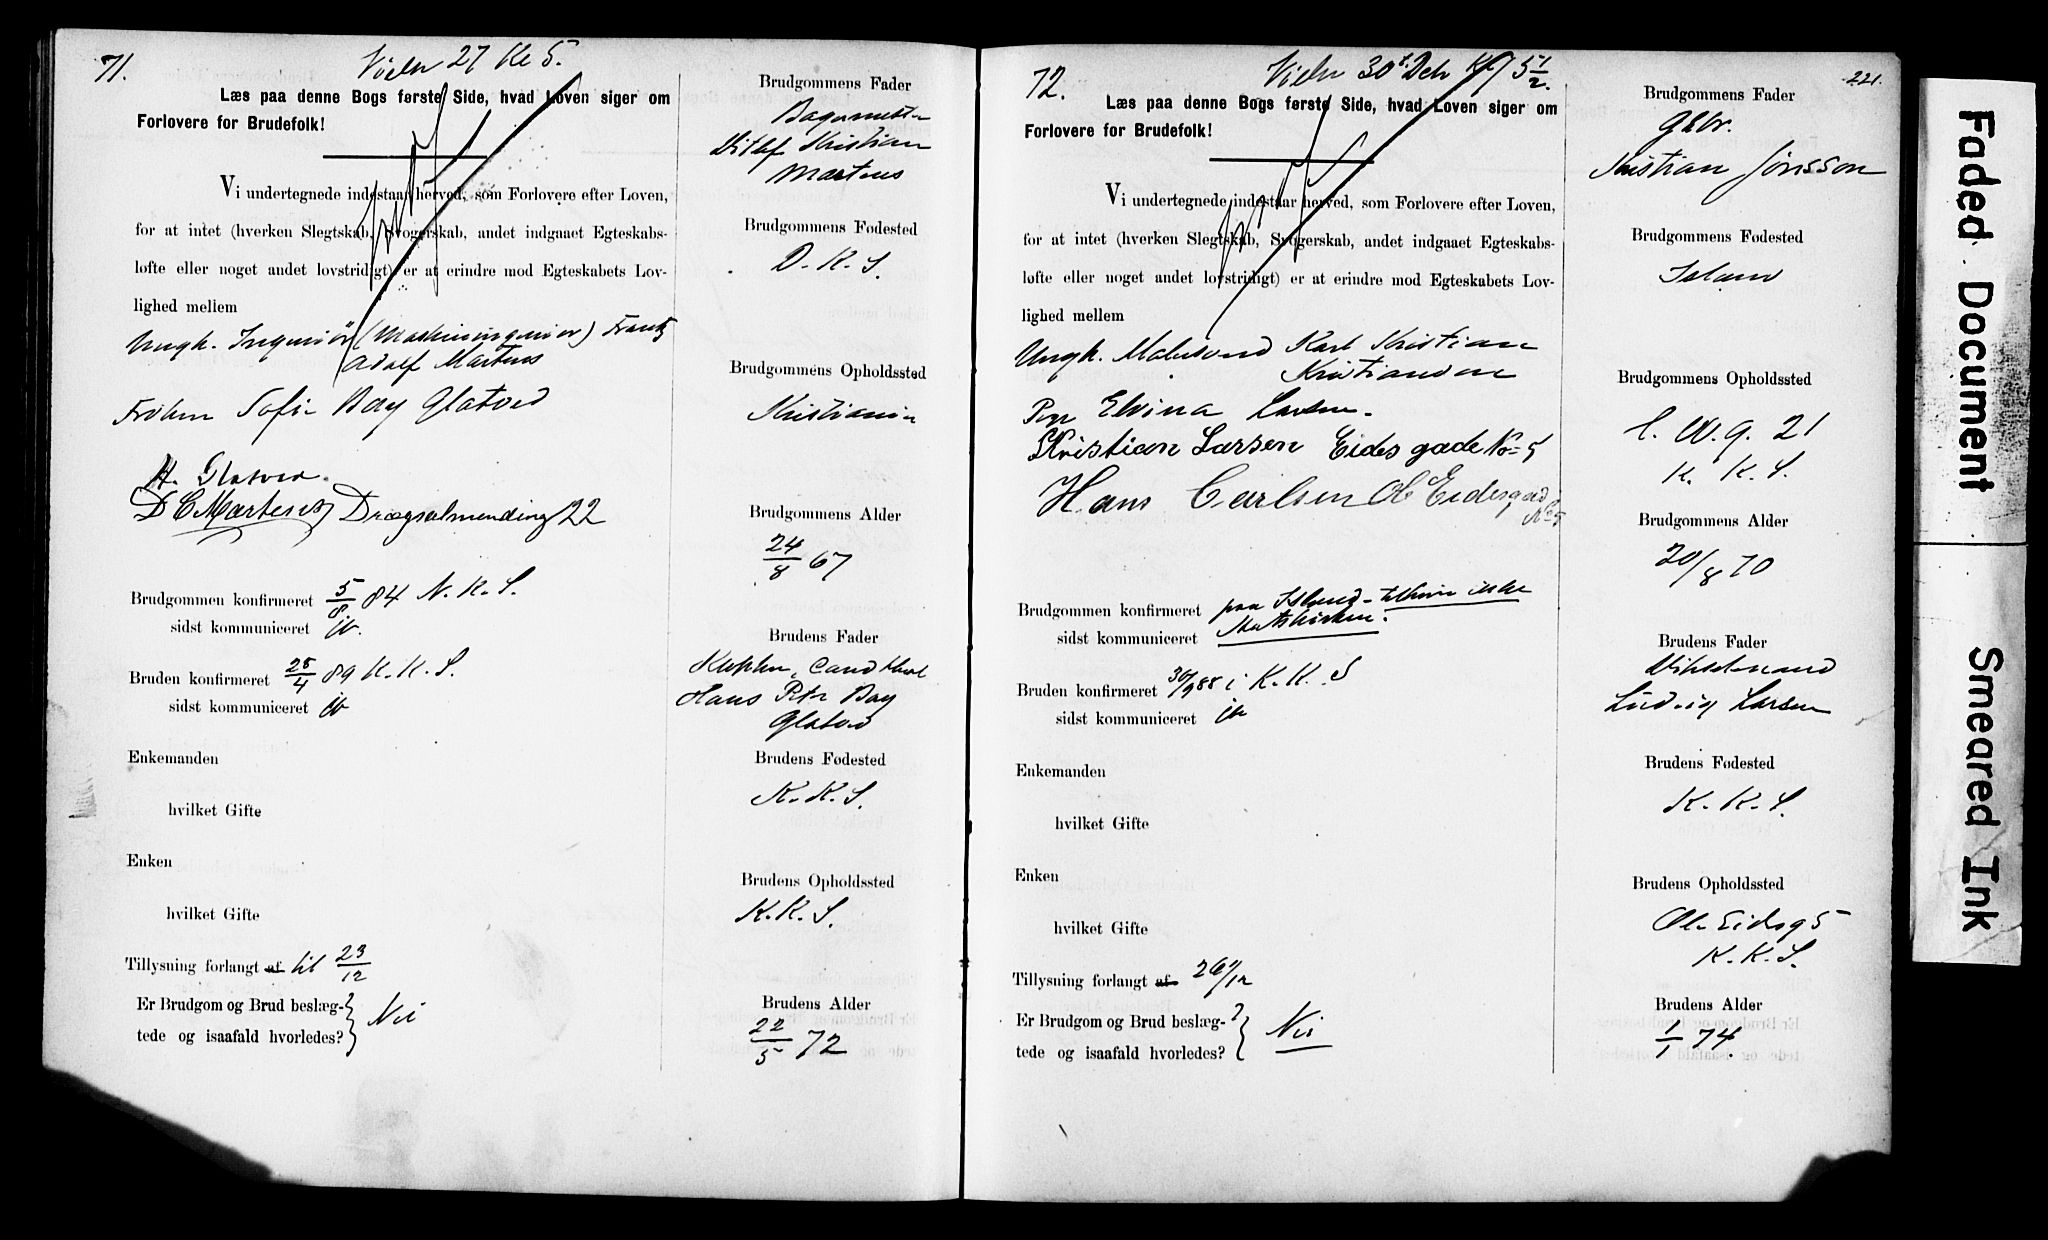 71.
Vielse 27 Kl 5.
Læs paa denne Bogs første Side, hvad Loven siger om
Forlovere for Brudefolk!
Vi undertegnede indestaar herved, som Forlovere efter Loven,
for at intet (hverken Slegtskab, Svogerskab, andet indgaaet Egteskabs-
løfte eller noget andet lovstridigt) er at erindre mod Egteskabets Lov-
lighed mellem
Ungk. Ingeniør (Maskiningeniør) Frantz
Adolf Martens
Frøken Sofie Bay Glatved
H. Glatved.
D C Martens Drægsalmending 22
Brudgommen konfirmeret 5/8 84 N. K. S.
sidst kommuniceret
Bruden konfirmeret 28/4 89 K. K. S.
sidst kommuniceret
Enkemanden
hvilket Gifte
Enken
hvilket Gifte
Tillysning forlangt af til 23/12
Er Brudgom og Brud beslæg-
tede og isaafald hvorledes? Nei
Brudgommens Fader
Bagermester
Ditlef Kristian
Martens
Brudgommens Fødested
D. K. S.
Brudgommens Opholdssted
Kristiania
Brudgommens Alder
24/8 67
Brudens Fader
Hans Peter Bay
Glatved
Brudens Fødested
K. K. S.
Brudens Opholdssted
K. K. S.
Brudens Alder
22/5 72
72.
Vielse 30' Dcb Kl 5 1/2.
221.
Læs paa denne Bogs første Side, hvad Loven siger om
Forlovere for Brudefolk!
Vi undertegnede indestaar herved, som Forlovere efter Loven,
for at intet (hverken Slegtskab, Svogerskab, andet indgaaet Egteskabs-
løfte eller noget andet lovstridigt) er at erindre mod Egteskabets Lov-
lighed mellem
Ungk. Malersvend Karl Kristian
Kristiansen
Pge Elvina Larsen.
Kristian Larsen Eides gade No 5
Hans Carlsen Ol Eidesgad
No 5
Brudgommen konfirmeret paa Island - tilhører ikke
sidst kommuniceret Statskirken.
Bruden konfirmeret 30/9 88 i K. K. S
sidst kommuniceret
Enkemanden
hvilket Gifte
Enken
hvilket Gifte
Tillysning forlangt af 26/12
Er Brudgom og Brud beslæg-
tede og isaafald hvorledes? Nei
Brudgommens Fader
Gbr.
Kristian Jónsson
Brudgommens Fødested
Island
Brudgommens Opholdssted
C. W. g. 21
K. K. S.
Brudgommens Alder
20/8 70
Brudens Fader
Ludvig Larsen
Brudens Fødested
K. K. S.
Brudens Opholdssted
Ole Eidsg 5
K. K. S.
Brudens Alder
1/1 74.
Faded Document
Smeared Ink